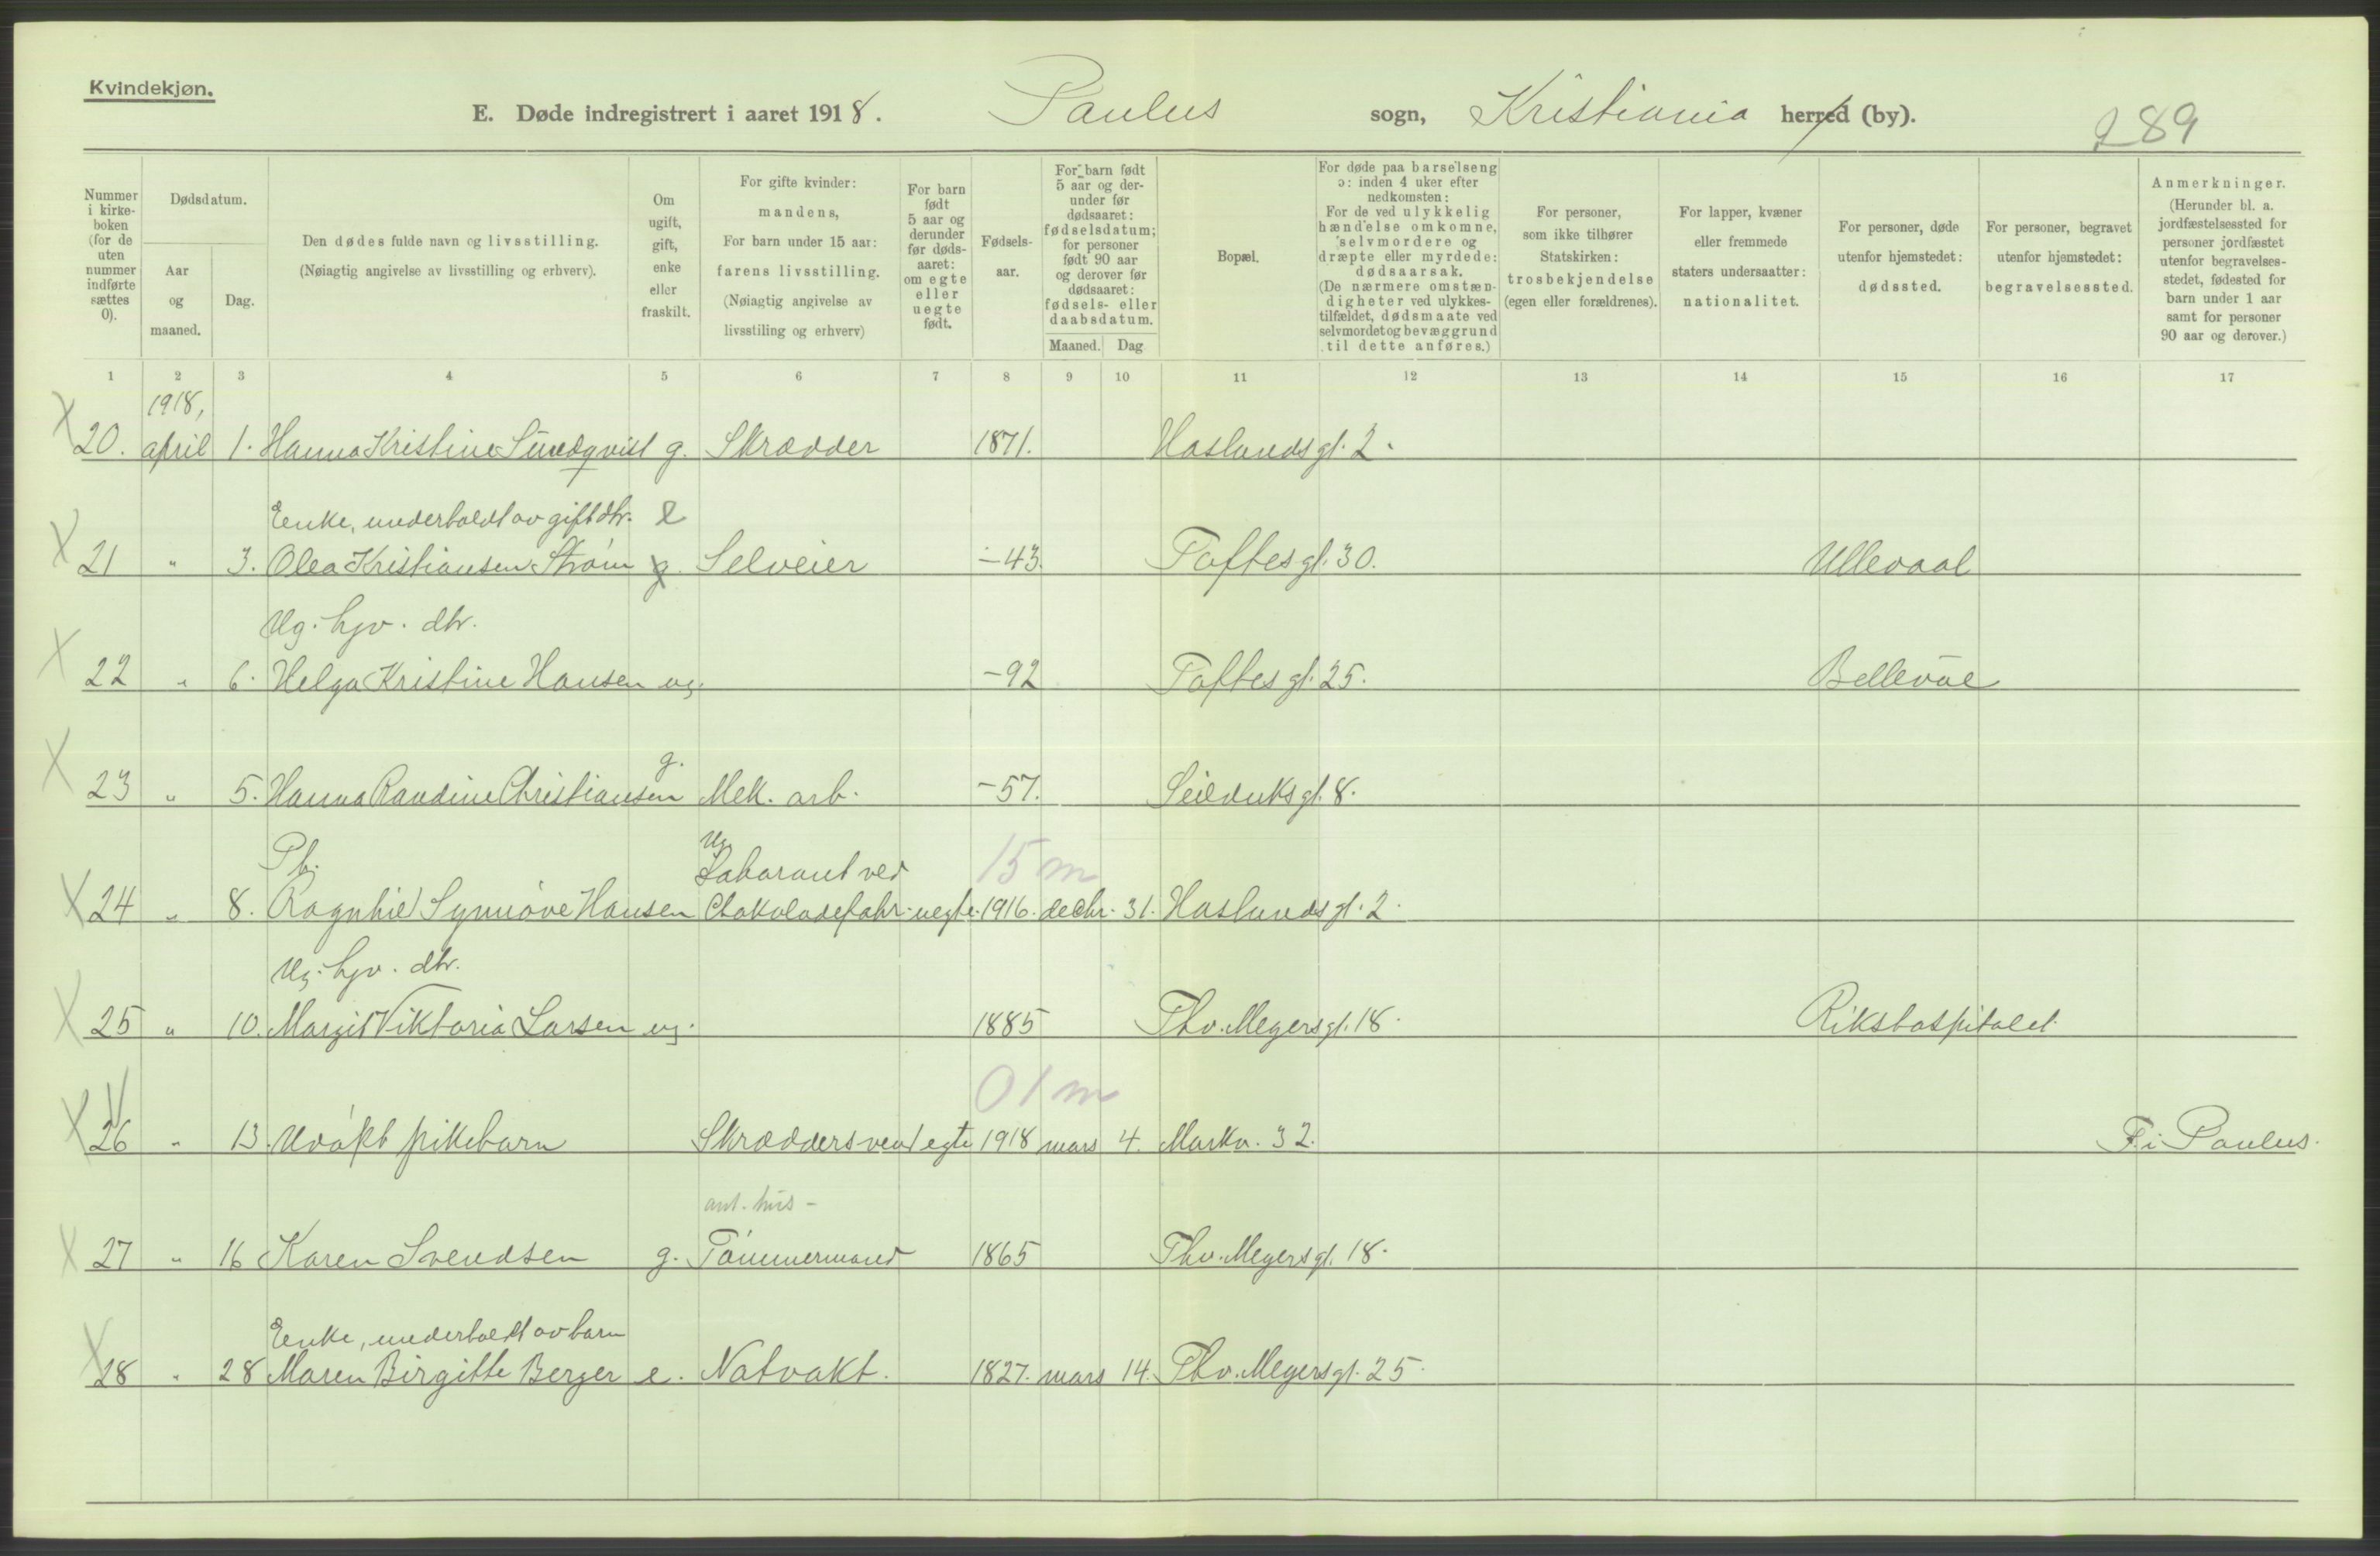 Kvindekjøn.
E. Døde indregistrert i aaret 1918. Paulus sogn, Kristiania herred (by). 289
Nummer i kirkeboken (for de uten nummer indførte sættes 0).
Dødsdatum.
Aar og maaned.
Dag.
Den dødes fulde navn og livsstilling.
(Nøiagtig angivelse av livsstilling og erhverv).
Om ugift, gift, enke eller fraskilt.
For gifte kvinder: mandens,
For barn under 15 aar: farens livsstilling.
(Nøiagtig angivelse av livsstiling og erhverv)
For barn født 5 aar og derunder før dødsaaret: om egte eller uegte født.
Fødselsaar.
For barn født 5 aar og derunder før dødsaaret: fødselsdatum; for personer født 90 aar og derover før dødsaaret: fødsels- eller daabsdatum.
Maaned. Dag
Bopæl.
For døde paa barselseng ɔ: inden 4 uker efter nedkomsten:
For de ved ulykkelig hændelse omkomne, selvmordere og dræpte eller myrdede: dødsaarsak.
(De nærmere omstændigheter ved ulykkestilfældet, dødsmaate ved selvmordet og bevæggrund til dette anføres.)
For personer, som ikke tilhører Statskirken: trosbekjendelse (egen eller forældrenes).
For lapper, kvæner eller fremmede staters undersaatter: nationalitet.
For personer, døde utenfor hjemstedet: dødssted.
For personer, begravet utenfor hjemstedet: begravelsessted.
Anmerkninger.
(Herunder bl. a. jordfæstelsessted for personer jordfæstet utenfor begravelsesstedet, fødested for barn under 1 aar samt for personer 90 aar og derover.)
1 2 3 4 5 6 7 8 9 10 11 12 13 14 15 16 17
1918,
X 20. april 1. Hanna Kristine Sundqvist g. Skrædder 1871. Haslunds gt. 2.
Enke, underholdt av gift dtr. e
X 21 " 3. Olea Kristiansen Strøm g. Selveier -43. Toftes gt. 30. Ullevaal
Ug. hjv. dtr.
X 22 " 6. Helga Kristine Hansen ug. -92 Toftes gt. 25. Bellevue
g.
X 23 " 5. Hanna Randine Christiansen Mek. arb. -57. Seilduks gt. 8.
Pb. Ug Laborant ved 15 m
X 24 " 8. Ragnhild Synnøve Hansen Chokoladefabr. uegte. 1916. decbr. 31. Haslunds gt. 2.
Ug. hjv. dtr.
X 25 " 10. Margit Viktoria Larsen ug. 1885 Thv. Meyers gt. 18. Rikshospitalet.
01 m
X 26 " 13. Udøpt pikebarn Skræddersvend egte 1918 mars 4. Markv. 32. F. i Paulus.
ant. hus-
X 27 " 16 Karen Svendsen g. Tømmermand 1865 Thv. Meyers gt. 18.
Enke, underholdt av barn
X 28 " 28 Maren Birgitte Berger e. Natvakt. 1827. mars 14. Thv. Meyers gt. 25.